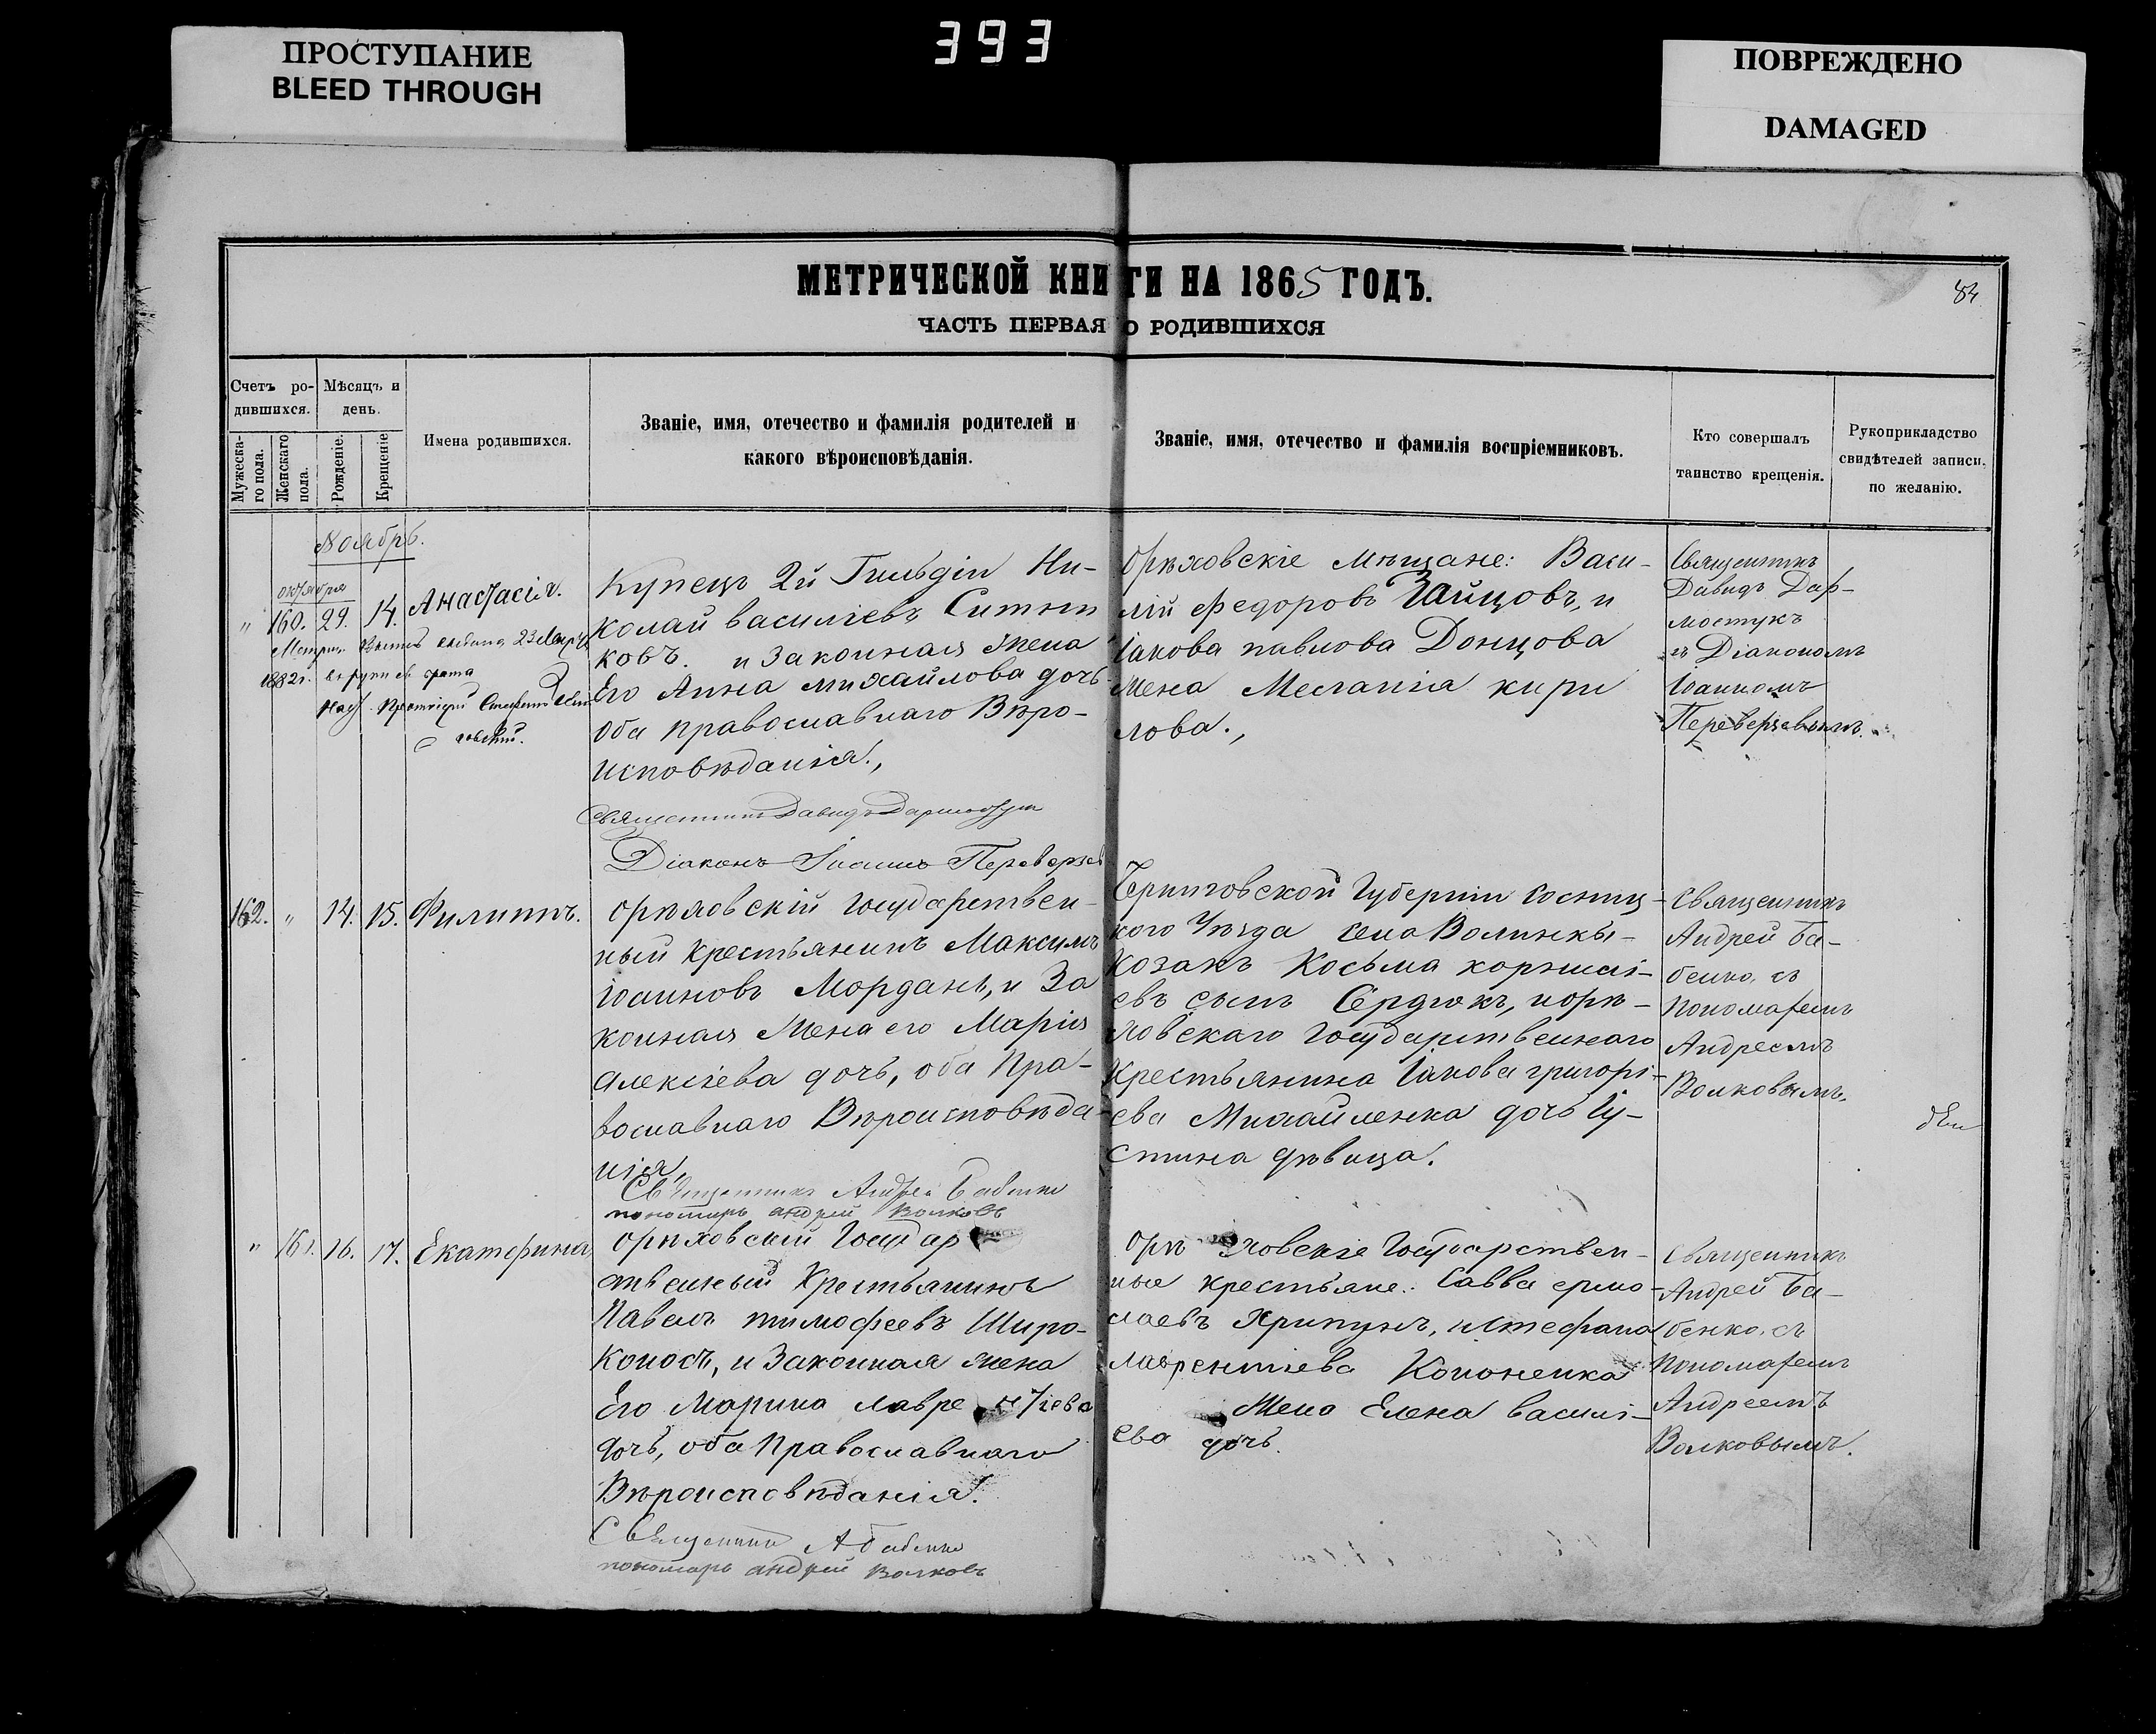 ПРОСТУПАНИЕ
BLEED THROUGH
393
ПОВРЕЖДЕНО
DAMAGED
МЕТРИЧЕСКОЙ КНИГИ НА 1865 ГОДЪ.
84
ЧАСТЬ ПЕРВАЯ О РОДИВШИХСЯ
Счетъ ро-
дившихся.
Мѣсяцъ и
день.
Мужеска-
го пола.
Женскаго
пола.
Рожденіе.
Крещеніе
Имена родившихся.
Званіе, имя, отечество и фамилія родителей и
какого вѣроисповѣданія.
Званіе, имя, отечество и фамилія воспріемниковъ.
Кто совершалъ
таинство крещенія.
Рукоприкладство
свидѣтелей записи.
по желанію.
Ноябрь.
октября
" 160. 29. 14. Анастасія.
1882 г.
Купецъ 2й Гильдіи Ни-
колай васильевъ Ситни
ковъ. и Законная жена
Его Анна михайлова дочь
оба православнаго Вѣро-
исповѣданія.,
Священникъ Давидъ
Діаконъ Іоаннъ Переверзев
Орѣховскіе Мѣщане: Васи-
лій Федоровъ Зайцовъ, и
Іакова павлова Донцова
жена Меланія кири
лова.,
Священникъ
Давидъ Дар-
мостукъ
съ Діакономъ
Іоанномъ
Переверзевымъ.
162. " 14. 15. Филиппъ.
Орѣховскій Государствен-
ный крестьянинъ Максимъ
Іоанновъ Мордань, и За
конная жена его Марія
Алексіева дочь, оба Пра-
вославнаго Вѣроисповѣда-
нія,
Священникъ Андрей Бабенко
пономарь андрей Волковъ
Черниговской Губерніи Сосниц-
кого Уѣзда села Волинкы-
Козакъ Косьма корнилі-
евъ сынъ Сердюкъ, и орѣ-
ховскаго Государственнаго
Крестьянина Іакова григорі-
ева Михайленка дочь Іу-
стина дѣвица.
Священникъ
Андрей Ба-
бенко, съ
Пономаремъ
Андреемъ
Волковымъ.
" 161. 16. 17. Екатерина
Орѣховскій Государ
ственный Крестьянинъ
Павелъ тимофеевъ Широ-
коносъ, и Законная жена
Его Марина лаврентіева
дочь, оба Православнаго
Вѣроисповѣданія.
Священникъ А Бабенко
пономарь андрей Волковъ
Орѣховскіе Государствен-
ные крестьяне: Савва ермо-
лаевъ Хрипунъ, и Стефана
лаврентіева Кононенка
жена Елена василі-
ева дочь.
Священникъ
Андрей Ба-
бенко, съ
Пономаремъ
Андреемъ
Волковымъ.